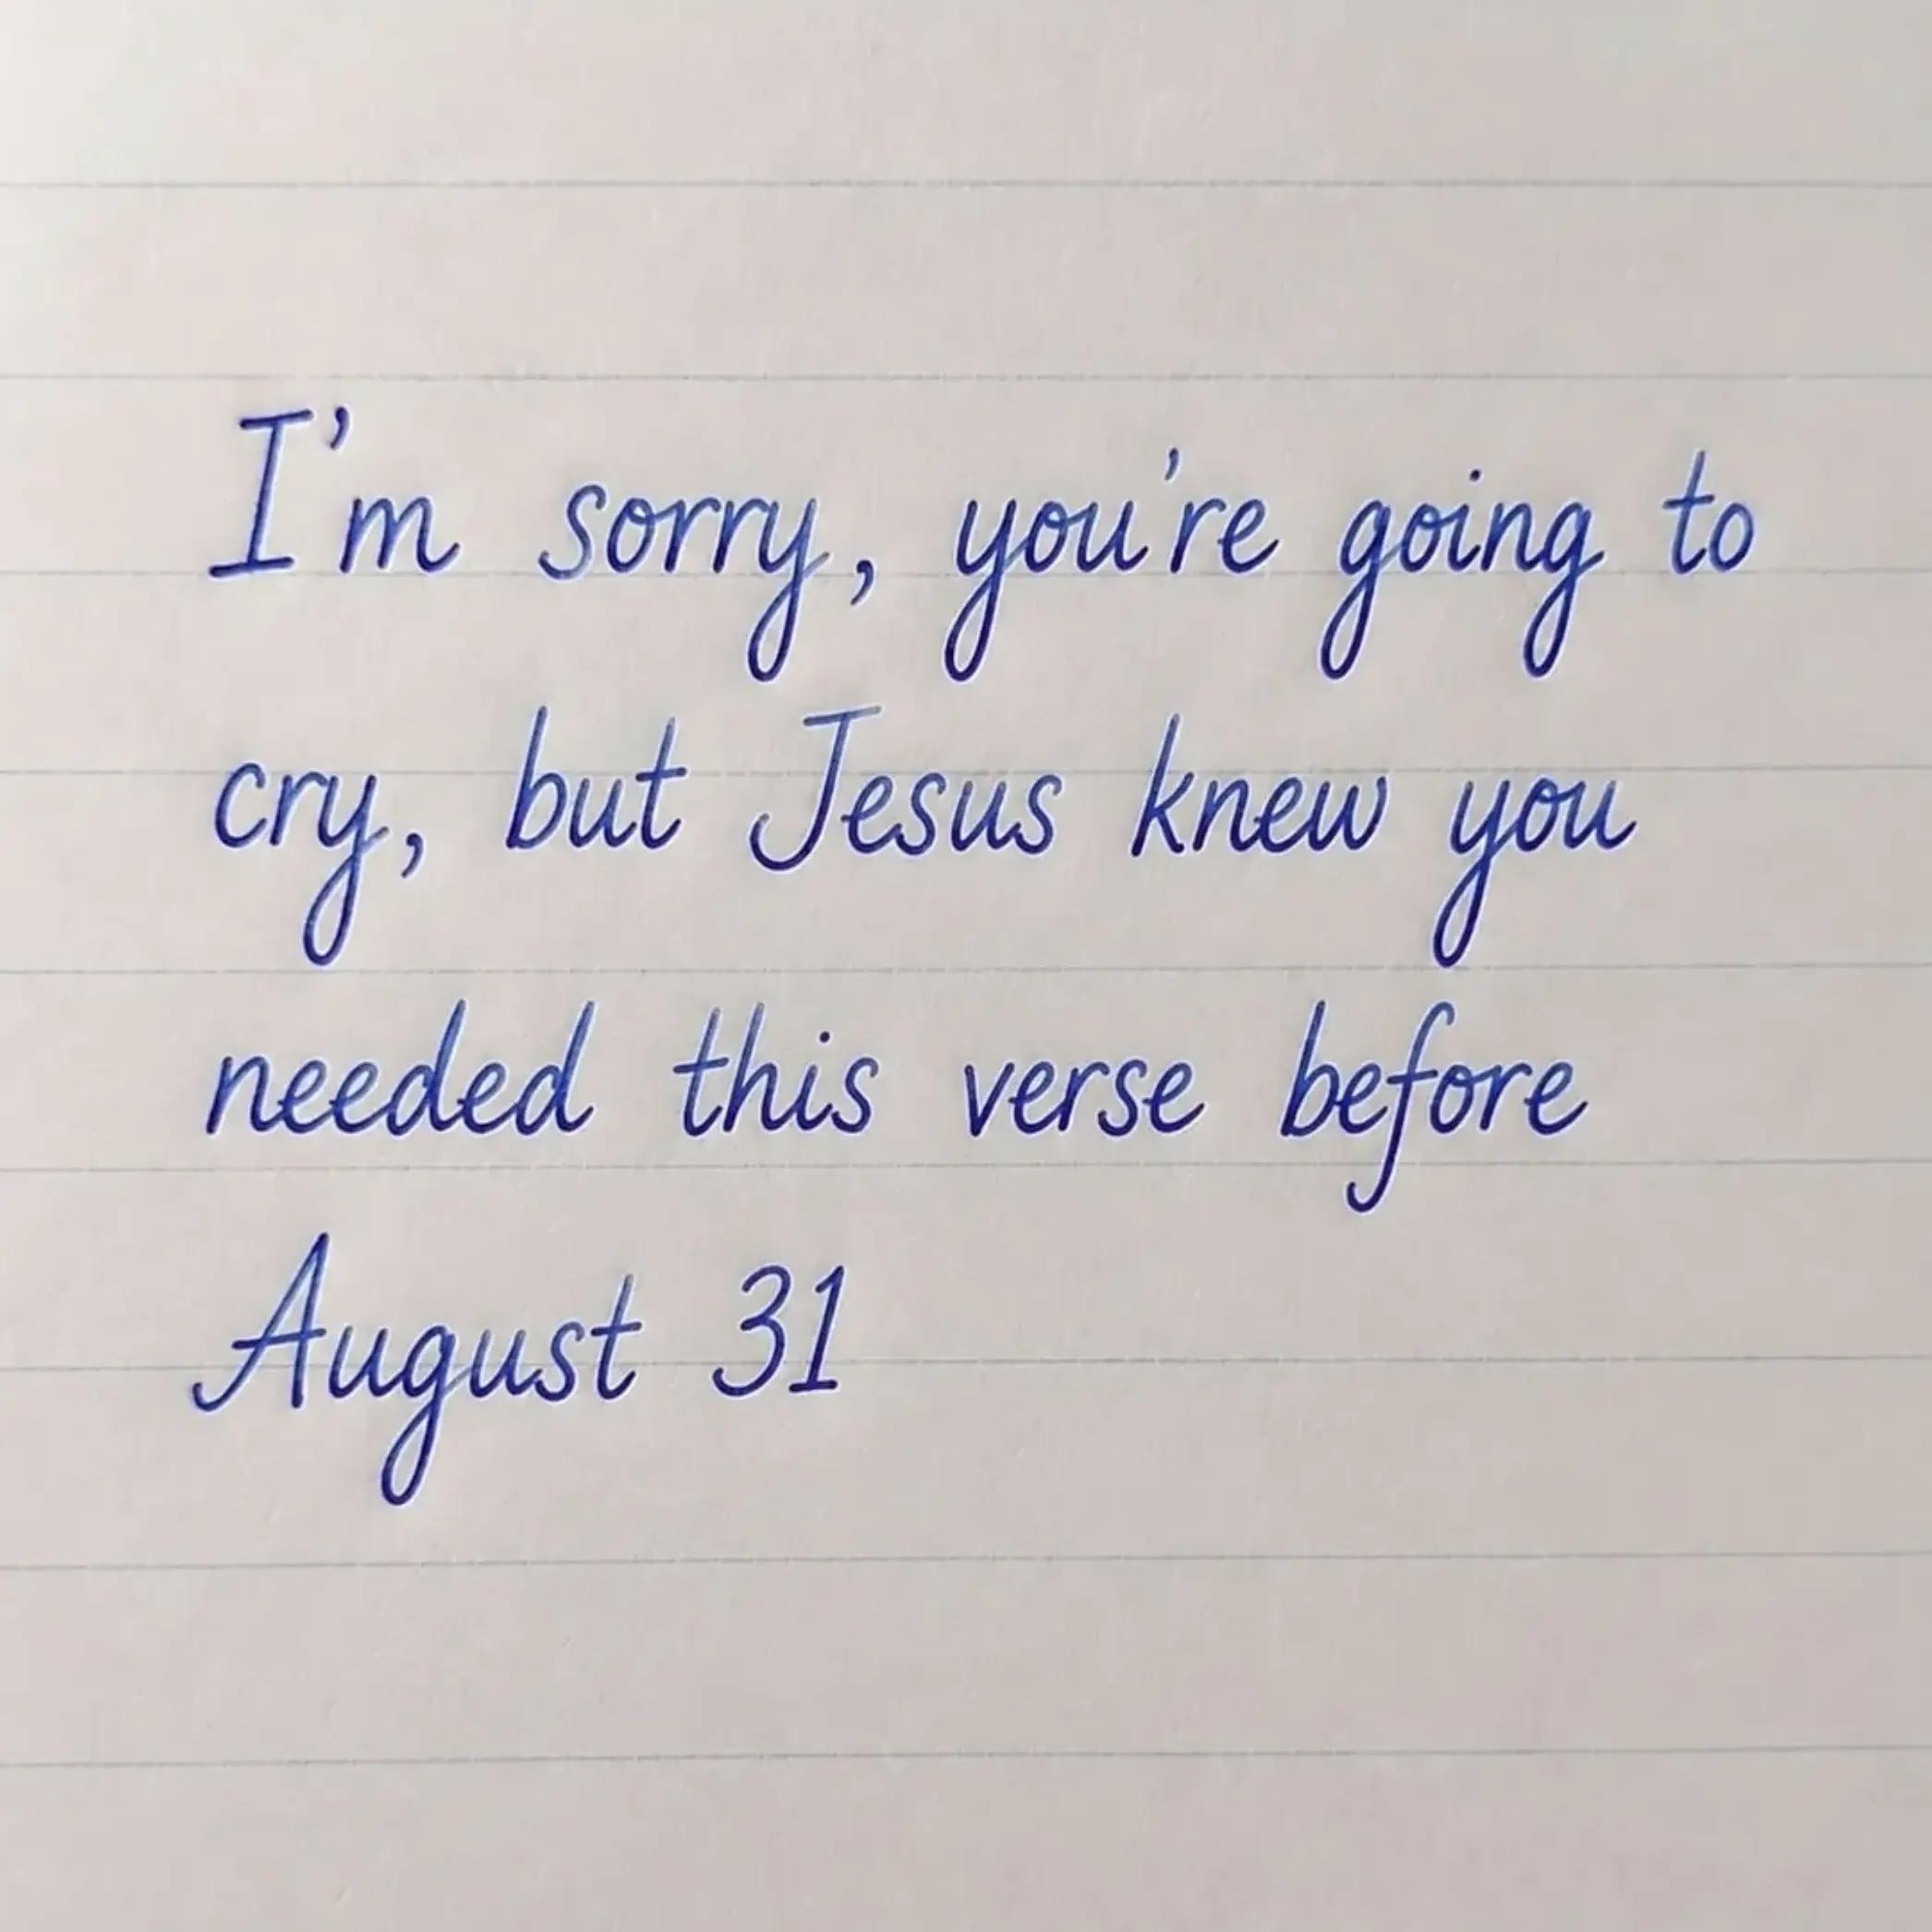 I'm sorry, you're going to
cry, but Jesus knew you
needed this verse before
August 31